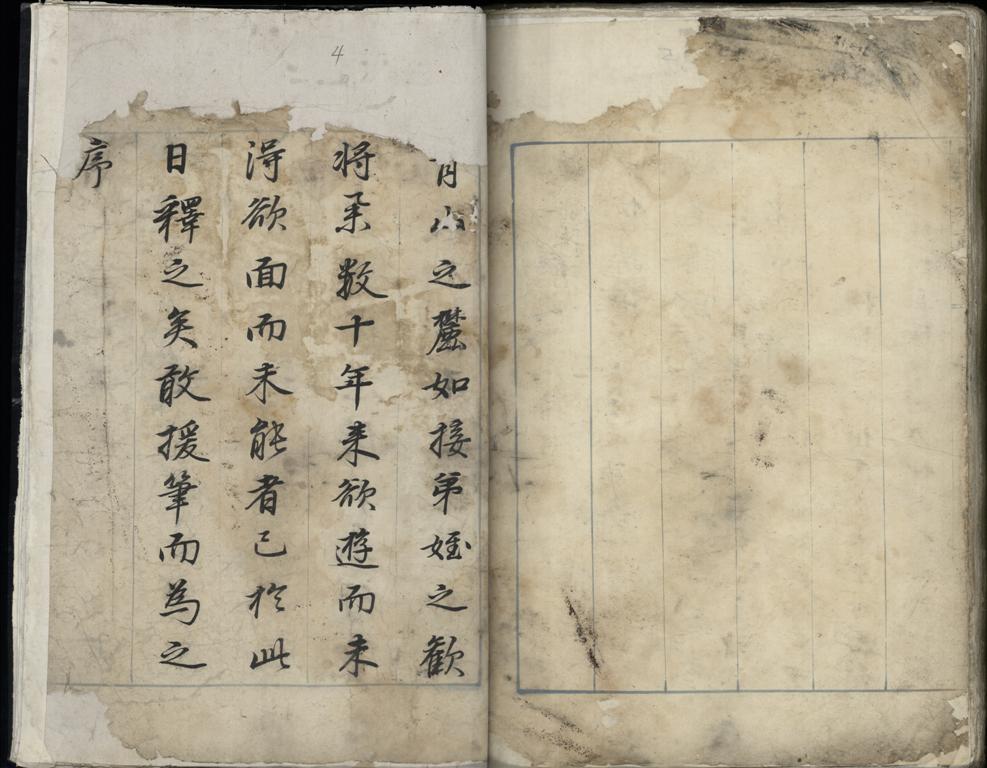 4
之如接弟姪之歡
将數十年来欲遊而未
得欲面而未能者已於此
日釋之矣敢援筆而為之
序